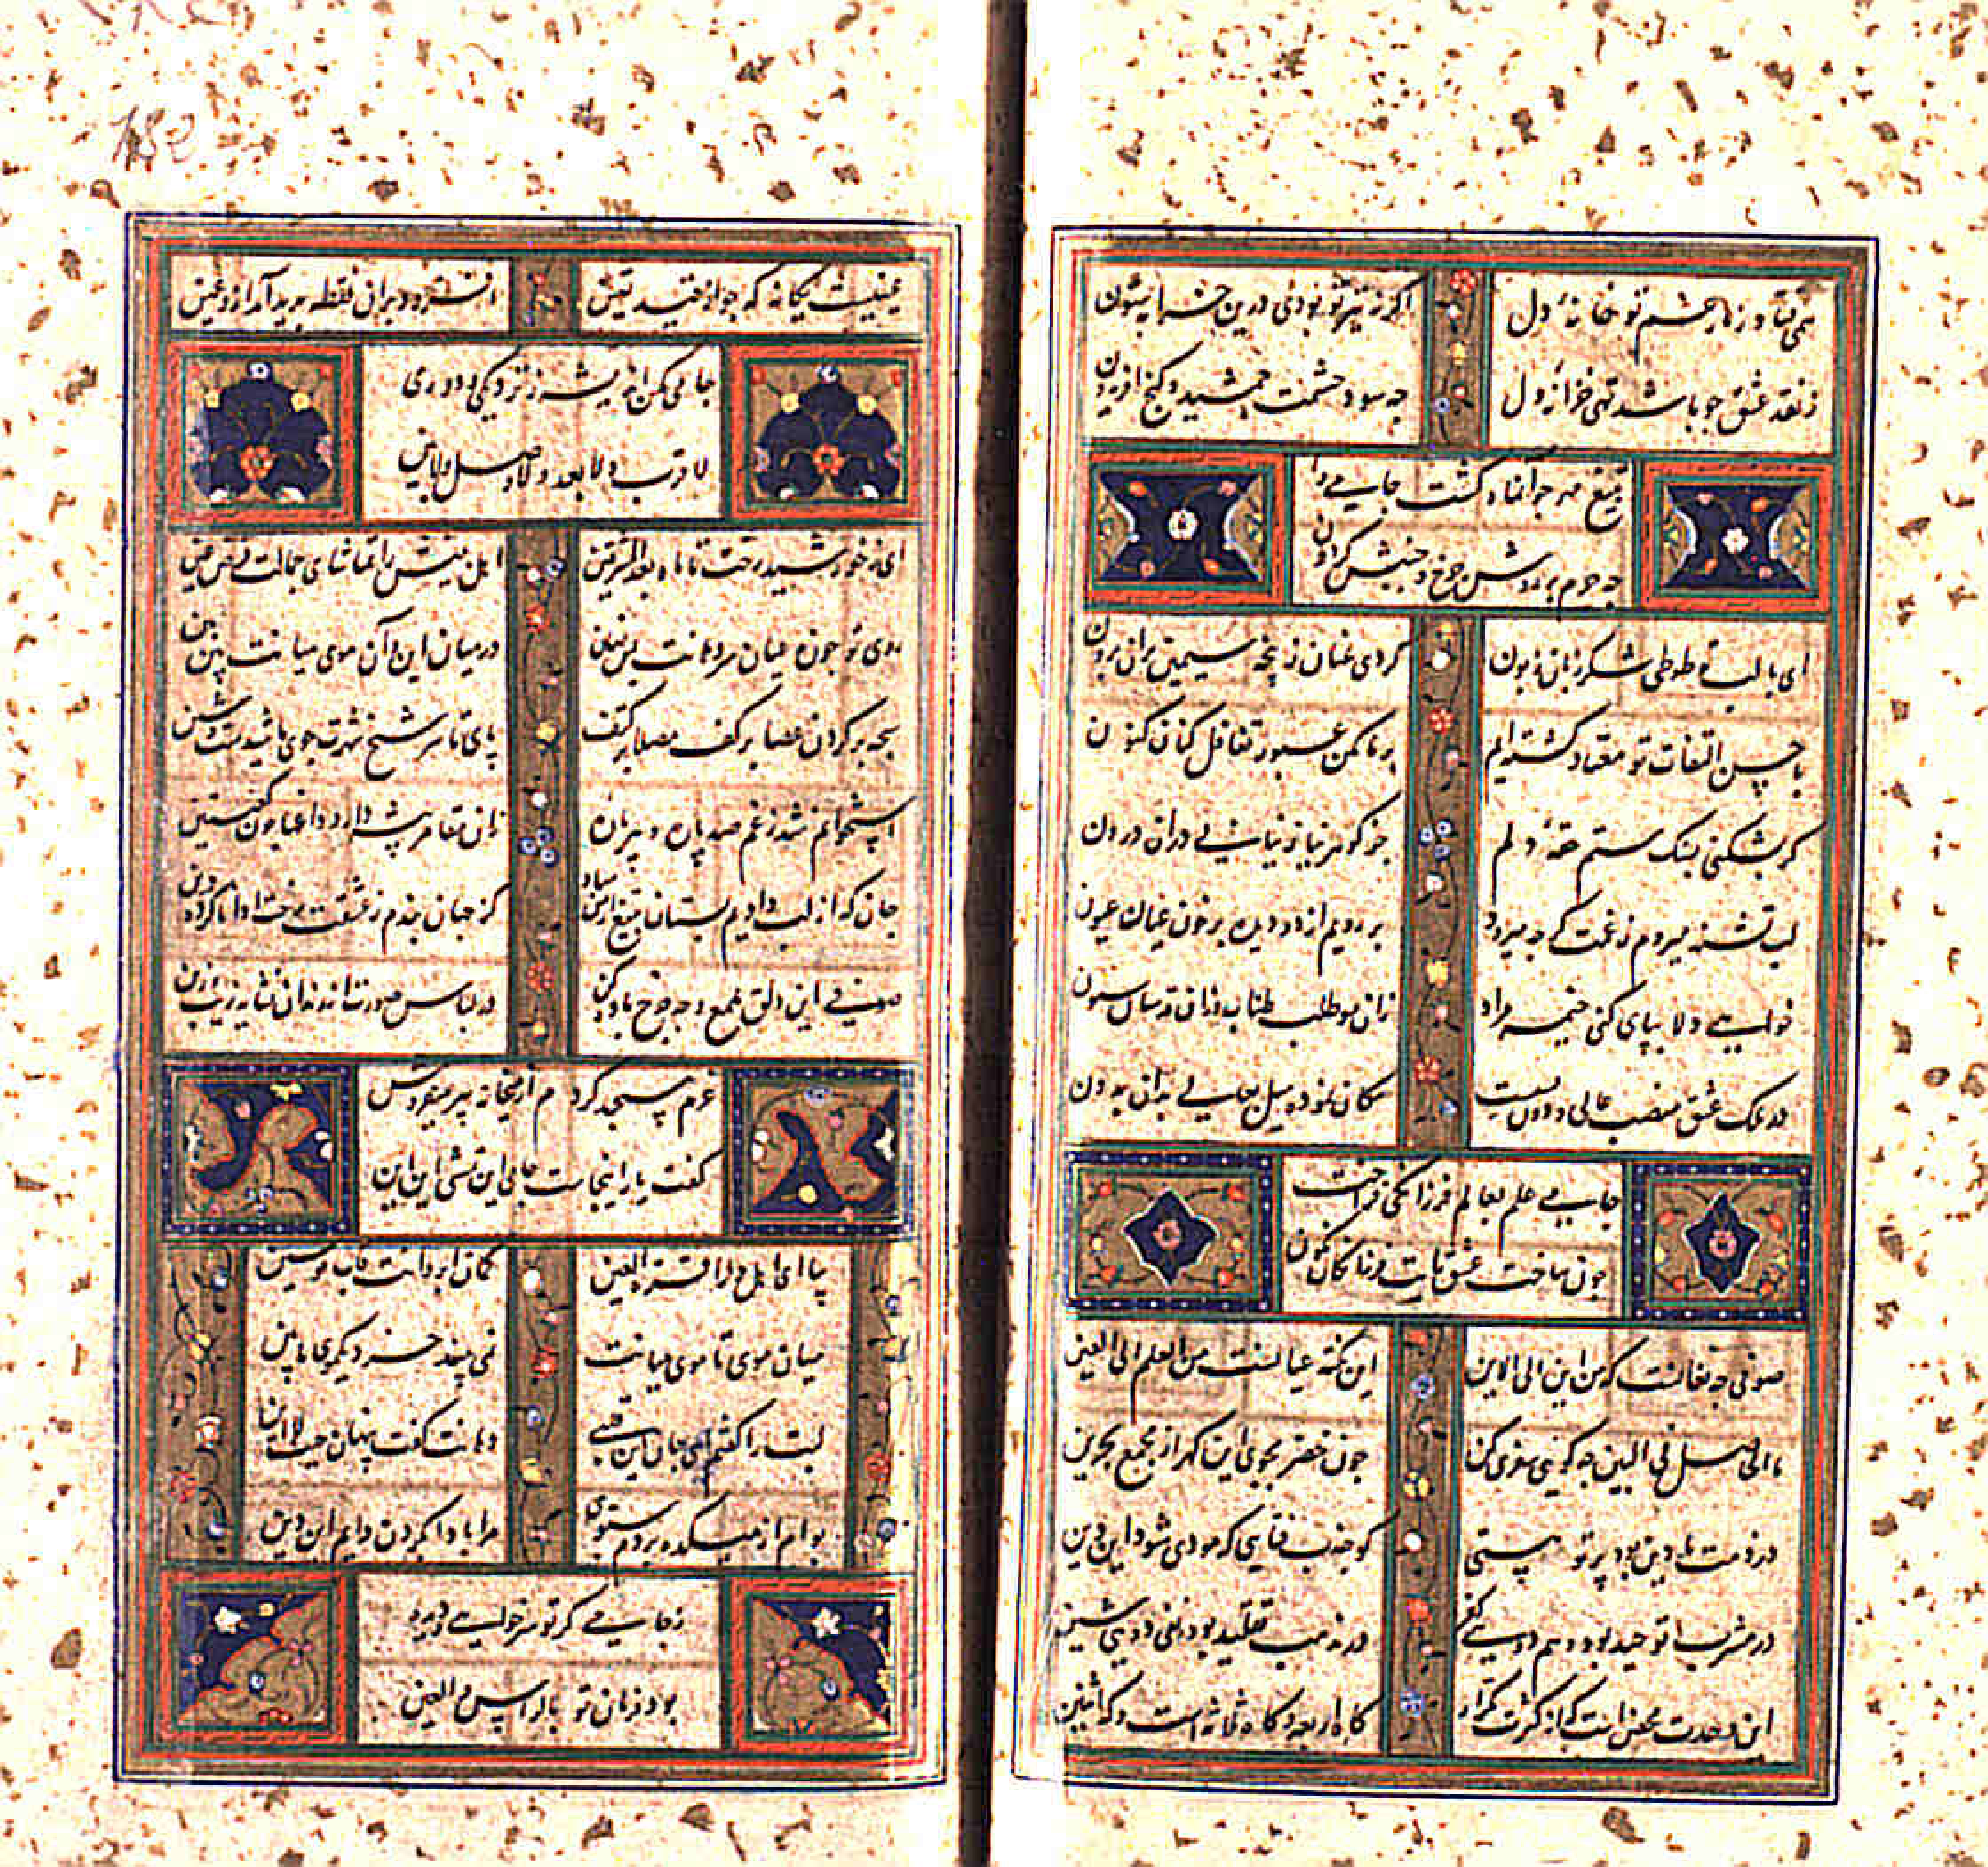 همی فتاد ز ناز چشم تو بخانهٔ دل اگر نه تیر تو بودی درین خرابه ستون
ز نقد عشق جو باشد تهی خزانهٔ دل جه سود حشمت جمشید و کنج افریدون
بتیغ مهر جوانهاد کشت جامی را
جه جرم بر روش جرخ و جنبش کردون
ای با لب تو طوطی شکر زبان زبون کردی عنان ز پنجه سیمین بران برون
با حسن التفات تو معتاد کشته ایم بر ما مکن عبور تغافل کنان کنون
کر بشکنی بسنک ستم حقهٔ دلم جز کوهر نیاز نیابی دران درون
لب تشنه میردم ز غمت کرجه میرود بر رویم از دو دیده پر خون عیان عیون
خواهی دلا بپای کنی خیمه مراد زان مو طلب طناب وزان قد ستان ستون
در ملک عشق منصب عالی و دون بسیست مکان نموده میل معالی بدان بدون
جامی علم بعالم فرزانکی فراخت
جون ساخت عشق رایت فرزانکان نکون
صوفی جه فغانست که من این الی الاین این نکته عیانست من العلم الی العین
ما الحاصل فی البین جه کویی سفری کن جون خضر بجوی این کهر از مجمع بحرین
در ذمت ما دین بود پرتو هستی کو جذب فنایی که مودی شود این دین
در مشرب توحید بود وهم دویی کفر در مذهب تقلید بود نفی دویی شین
این وحدت محض است که از کثرت تکرار کاه اربعه و کاه ثلاثه است و که اثنین
عینیست یکانه که جو از قید تعین افسرد دران نقطه پدید آمد ازو غین
جامی مکن اندیشه ز نزدیکی و دوری
لا قرب ولا بعد ولا وصل ولا بین
ای ز خورشید رخت تا ماه بعد المشرقین اهل بینش را تماشای جمالت فرض عین
روی تو جون مه عیان سر دهانت بس نهان در میان این و آن موی میانت بین بین
سبحه بر کردن عصا بر کف مصلا بر کتف پای تا سر شیخ شهرت جوی ما شیدست و شین
استخوانم شد ز غم صد پاره و پیر زان زان مقامر پیشه دارد داغها جون کعبتین
جان که از لب داده ایم بستان بتیغ این میاد کز جهان بندم ز عشقت رخت ادا ناکرده دین
صوفی این دلق ملمع وجه جوخ باده کن در لباس صورت اندازان نشاید زیب و زین
عزم مسجد کردم از میخانه پیر میفروش
کفت یار اینجاست جامی این تمشی این این
بیا ای اهل دل را قرة العین کمان ابروانت قاب قوسین
میان موی تا موی میانت نمی بینند جز دیکری مابین
لبت را کفتم ای جان این قلبی دهانت کفت پنهان حیث لا این
بوام از میکده بردم سبوی مرا بادا بکردن دایم این دین
ز جامی کر تو سر خواهی و دیده
بود فرمان تو بالراس و العین